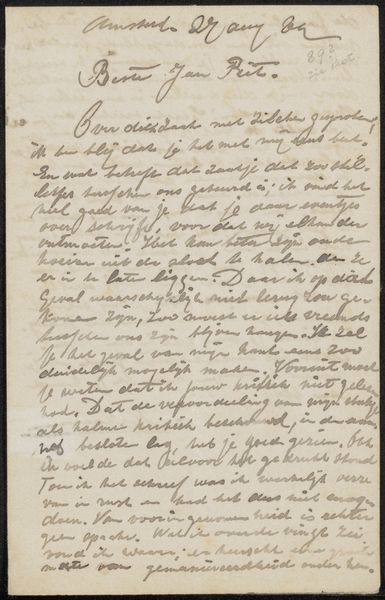 Amsterd. 27 aug 89
893
Beste Jan Piet.
Over die zaak met Zilcken gesproken,
ik ben blij dat je het met mij eens bent.
En wat betreft dat zaakje dat zoo stil-
letjes tusschen ons gebeurd is; ik vond het
heel goed van je dat je daar eventjes
over schrijft, voor dat wij elkander
ontmoeten. Het kan beter zijn oude
koeien uit de sloot te halen, dan ze
er in te laten liggen. Daar ik op dit
geval waarschijnlijk niet terug zou ge-
komen zijn, zoo moest er iets vreemds
tusschen ons zijn blijven hangen. Ik zal
je het geval van mijn kant eens zoo
duidelijk mogelijk maken. Vooruit moet
je weten dat ik jouw kritiek niet gelezen
had. Dat de veroordeeling van mijn stukje
als kalme kritiek beschouwd, in de aan-
hef besloten lag, heb je goed gezien. Ook
ik voelde dat bij het gedrukt stond
Toen ik het schreef was ik werkelijk verre
van in rust en had het dus niet mogen
doen. Van vooringenomenheid is echter
geen sprake. Wat ik over de vingt zei
vond ik waar: er heerscht een groote
mate van gemanierdheid onder hen.